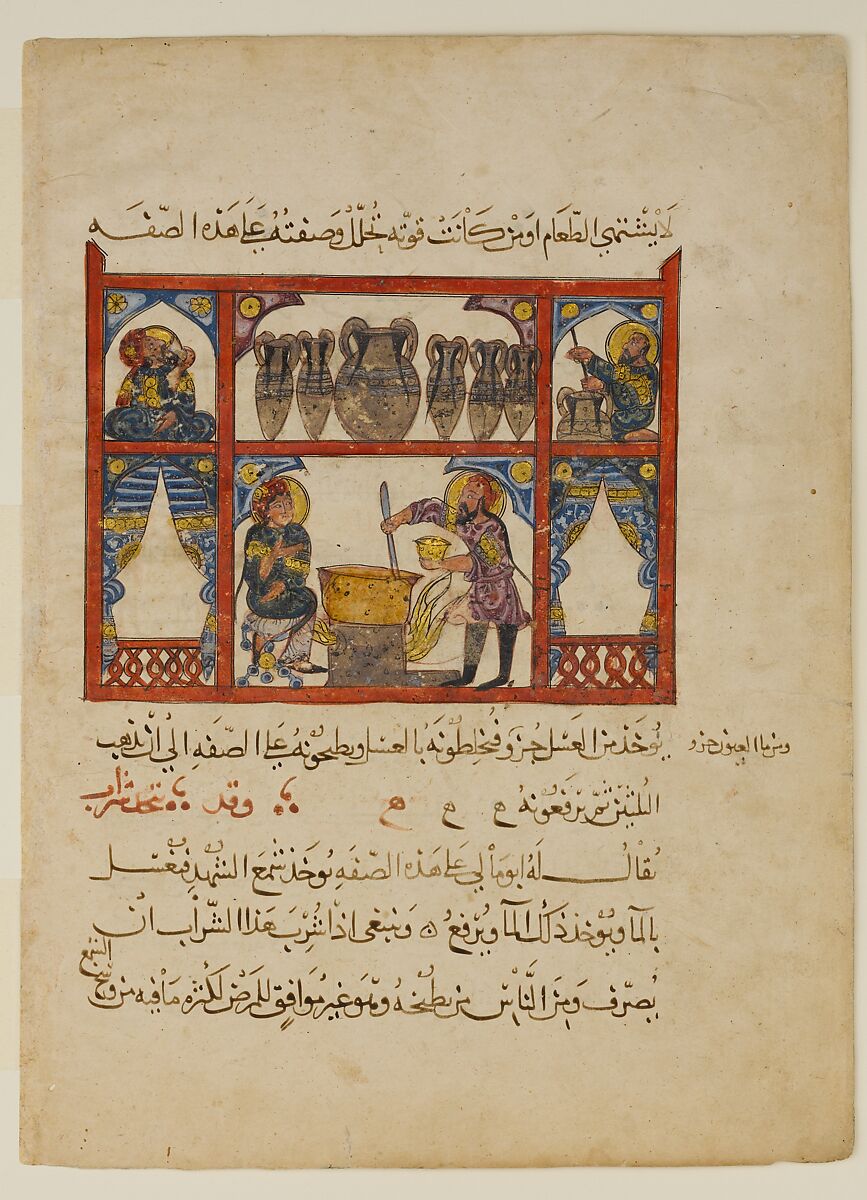 لا يشتهي الطَّعام اومن كانت قوّته تُحلَّل وصفتهُ على هذه الصّفه
يُوخذ من العسل جزو فيُخلِطُونَهُ بالعسل ويطبخونهُ على الصّفه الى ان يذهب
ومن ما العيون جزو
الثلثين ثمّ يرفعُونهُ ه ه ه وقد يتخذ شراب
يُقال لهُ ابومالي على هذه الصّفه يُوخذ شمع الشهد فيغسل
بالما ويُوخذ ذلك الما ويُرفعُ ه وينبغي اذا شُرِبَ هذا الشّراب ان
يُصرّف ومن النَّاس من يطبخهُ وهو غير مُوافق للمرض لكثره ما فيه من وسخ
الشمع